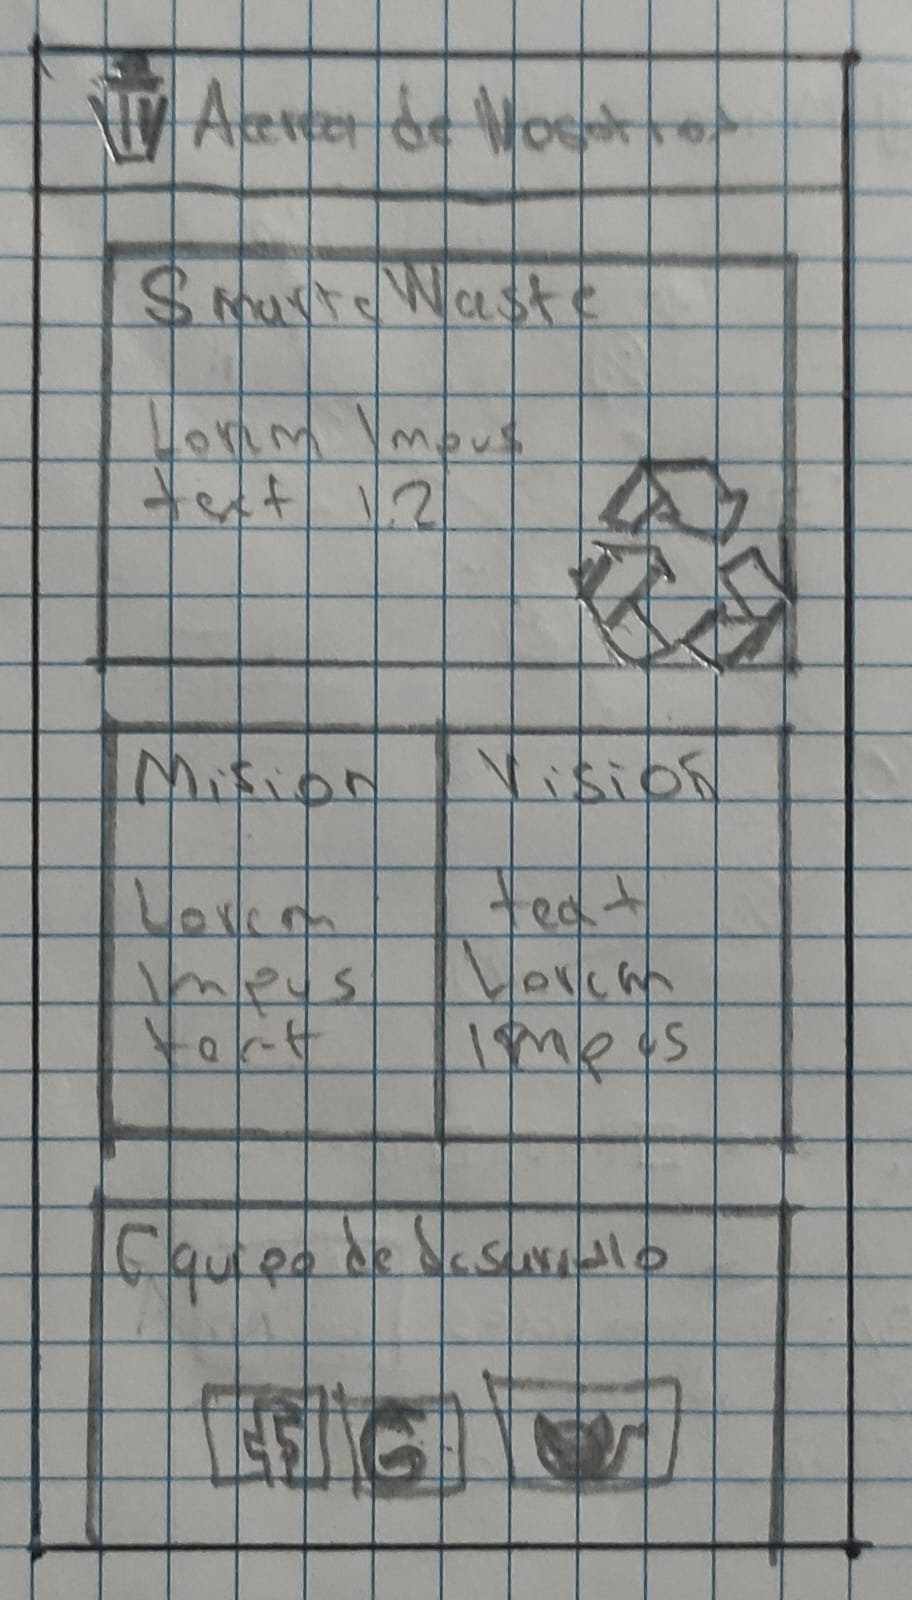 Acerca de Nosotros
Smarte Waste
Lorem Impus
text 12
Mision
Lorem
Impus
text
Visión
text
Lorem
Impus
Equipo de desarrollo
f G